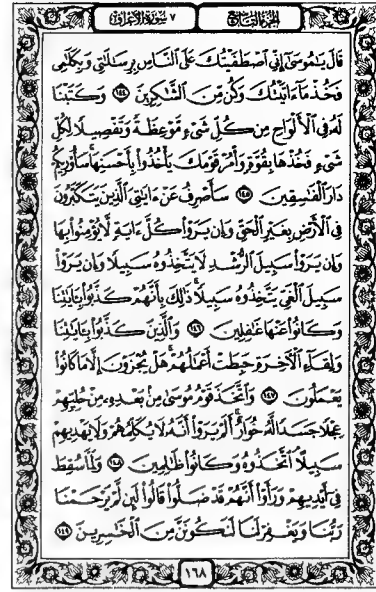 الجزء التاسع ٧ سورة الأعراف
قَالَ يَٰمُوسَىٰٓ إِنِّي ٱصْطَفَيْتُكَ عَلَى ٱلنَّاسِ بِرِسَٰلَٰتِي وَبِكَلَٰمِي
فَخُذْ مَآ ءَاتَيْتُكَ وَكُن مِّنَ ٱلشَّٰكِرِينَ ١٤٤ وَكَتَبْنَا
لَهُۥ فِي ٱلْأَلْوَاحِ مِن كُلِّ شَيْءٍ مَّوْعِظَةً وَتَفْصِيلًا لِّكُلِّ
شَيْءٍ فَخُذْهَا بِقُوَّةٍ وَأْمُرْ قَوْمَكَ يَأْخُذُوا۟ بِأَحْسَنِهَا سَأُو۟رِيكُمْ
دَارَ ٱلْفَٰسِقِينَ ١٤٥ سَأَصْرِفُ عَنْ ءَايَٰتِيَ ٱلَّذِينَ يَتَكَبَّرُونَ
فِي ٱلْأَرْضِ بِغَيْرِ ٱلْحَقِّ وَإِن يَرَوْا۟ كُلَّ ءَايَةٍ لَّا يُؤْمِنُوا۟ بِهَا
وَإِن يَرَوْا۟ سَبِيلَ ٱلرُّشْدِ لَا يَتَّخِذُوهُ سَبِيلًا وَإِن يَرَوْا۟
سَبِيلَ ٱلْغَيِّ يَتَّخِذُوهُ سَبِيلًا ذَٰلِكَ بِأَنَّهُمْ كَذَّبُوا۟ بِـَٔايَٰتِنَا
وَكَانُوا۟ عَنْهَا غَٰفِلِينَ ١٤٦ وَٱلَّذِينَ كَذَّبُوا۟ بِـَٔايَٰتِنَا
وَلِقَآءِ ٱلْءَاخِرَةِ حَبِطَتْ أَعْمَٰلُهُمْ هَلْ يُجْزَوْنَ إِلَّا مَا كَانُوا۟
يَعْمَلُونَ ١٤٧ وَٱتَّخَذَ قَوْمُ مُوسَىٰ مِنۢ بَعْدِهِۦ مِنْ حُلِيِّهِمْ
عِجْلًا جَسَدًا لَّهُۥ خُوَارٌ أَلَمْ يَرَوْا۟ أَنَّهُۥ لَا يُكَلِّمُهُمْ وَلَا يَهْدِيهِمْ
سَبِيلًا ٱتَّخَذُوهُ وَكَانُوا۟ ظَٰلِمِينَ ١٤٨ وَلَمَّا سُقِطَ
فِيٓ أَيْدِيهِمْ وَرَأَوْا۟ أَنَّهُمْ قَدْ ضَلُّوا۟ قَالُوا۟ لَئِن لَّمْ يَرْحَمْنَا
رَبُّنَا وَيَغْفِرْ لَنَا لَنَكُونَنَّ مِنَ ٱلْخَٰسِرِينَ ١٤٩
١٦٨